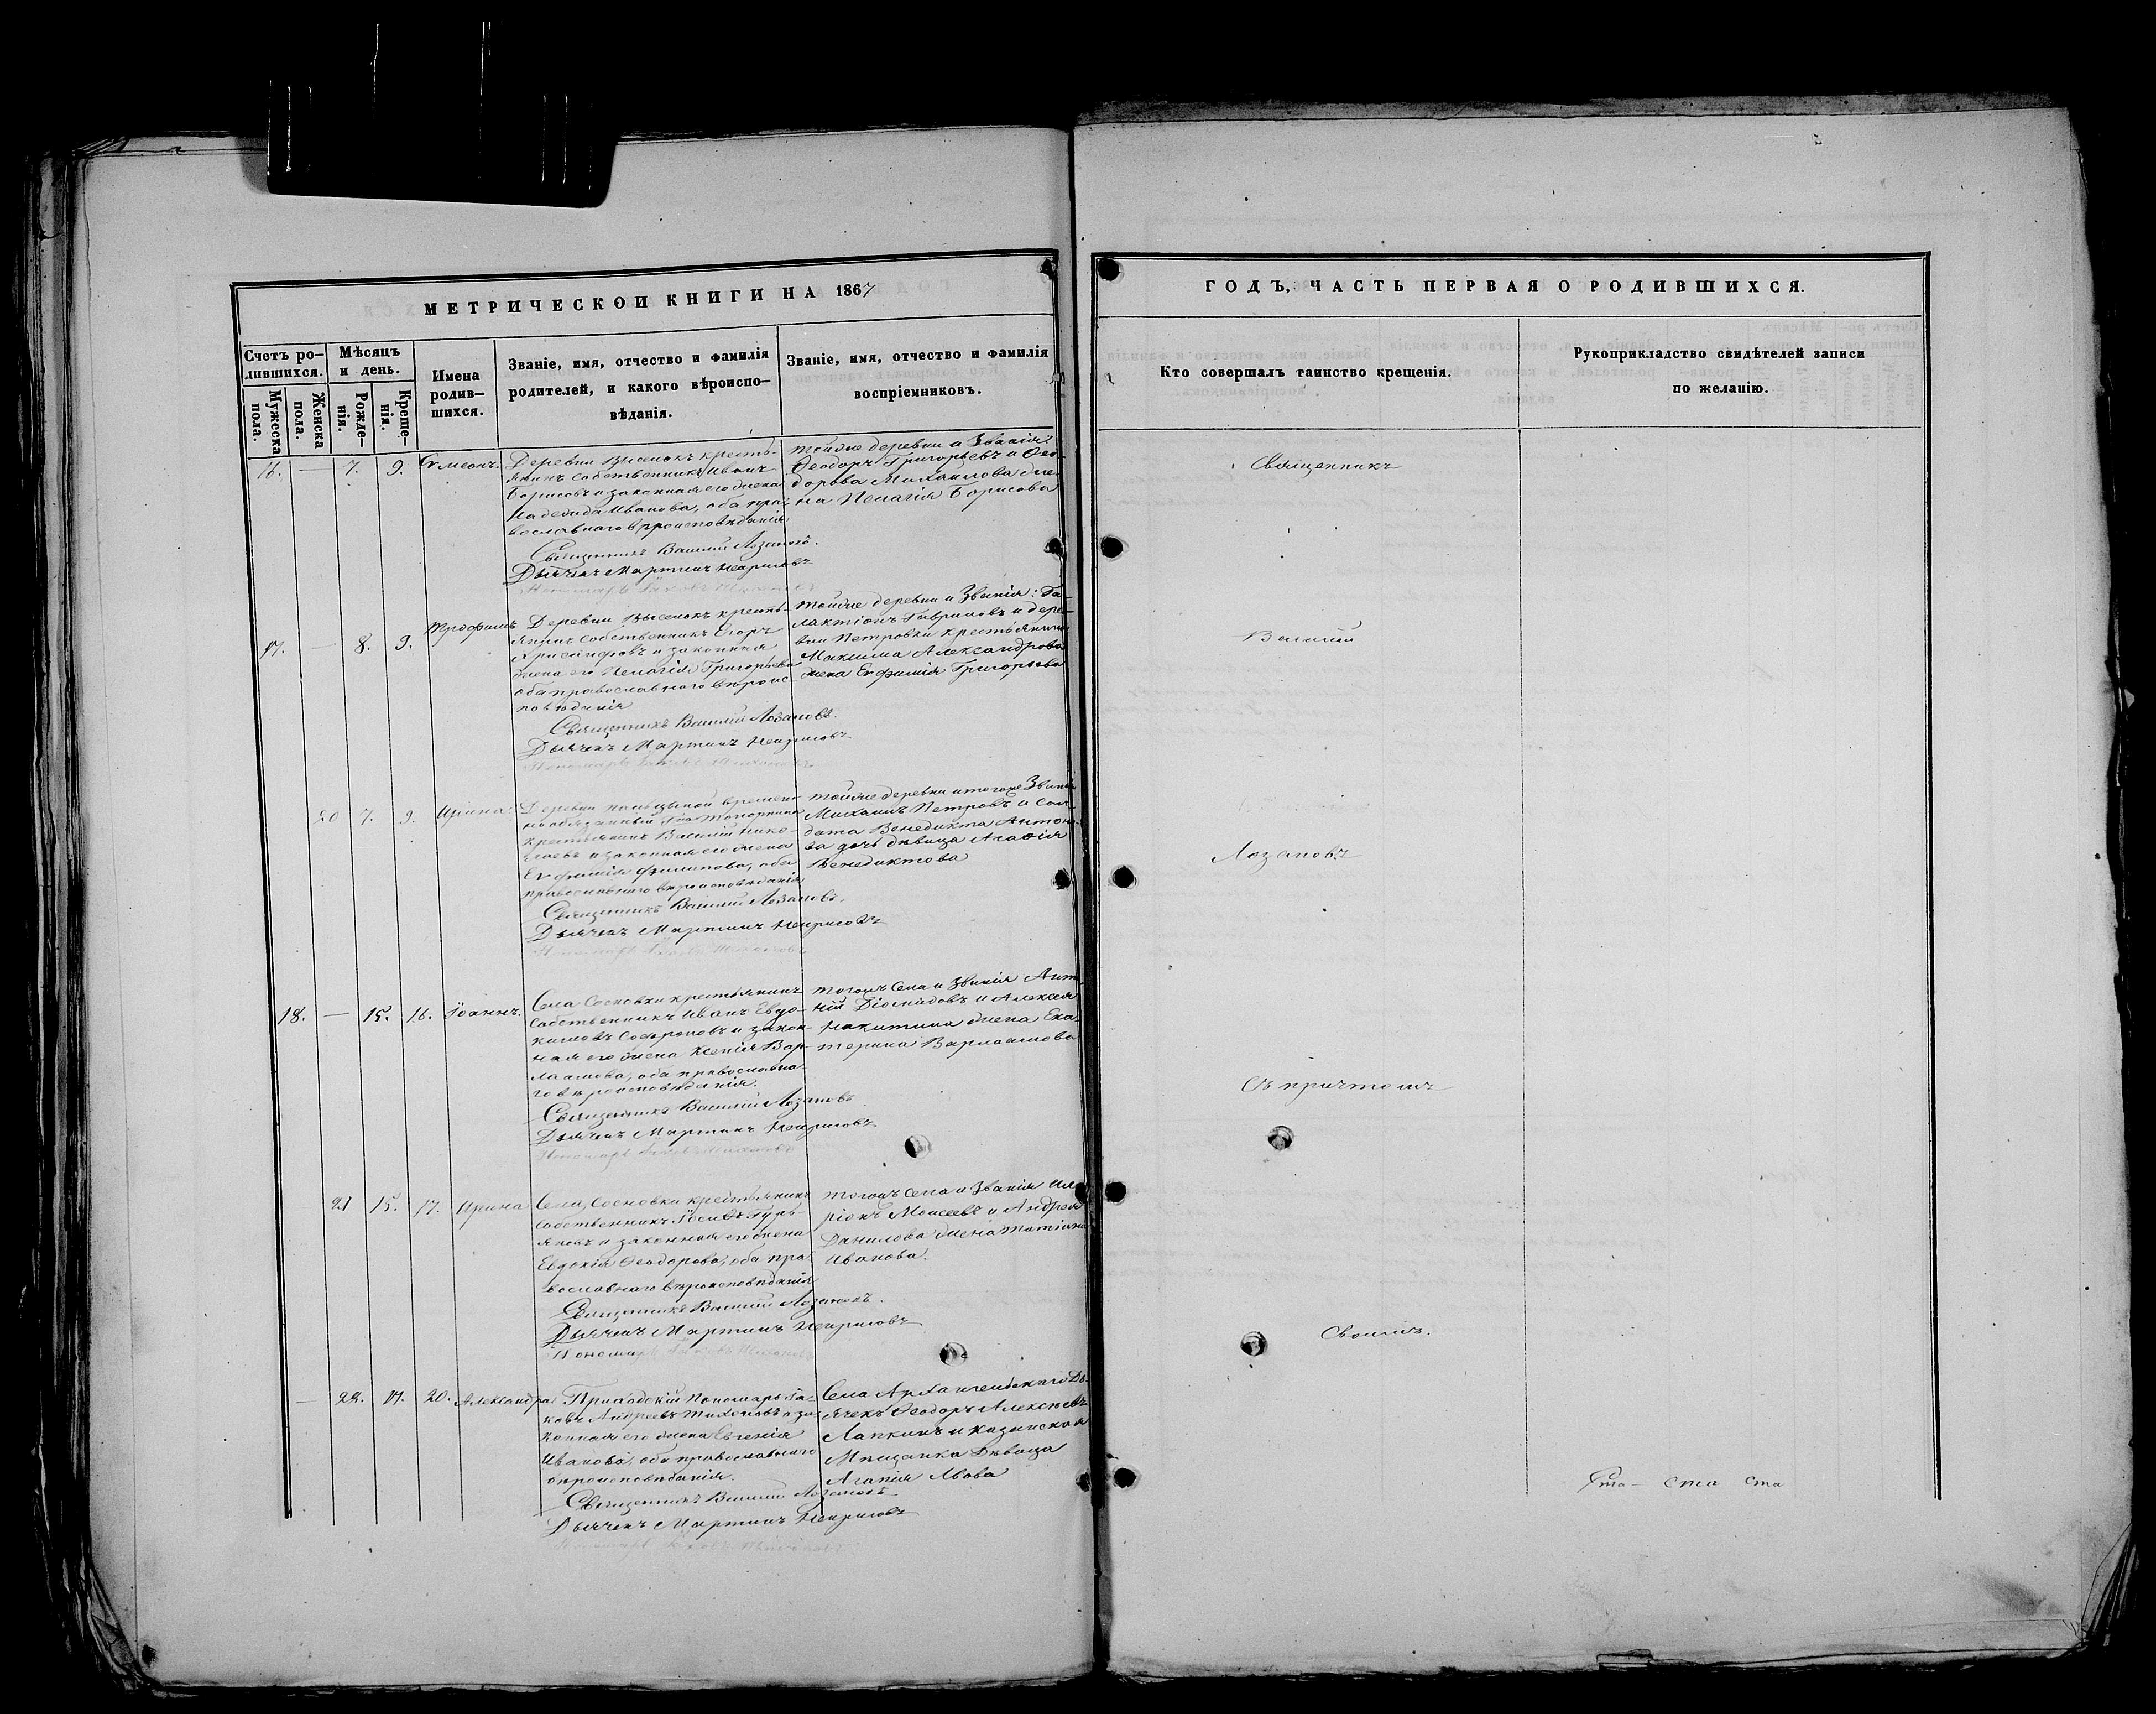 МЕТРИЧЕСКОЙ КНИГИ НА 1867
Счетъ ро-
дившихся.
Мѣсяцъ
и день.
Мужеска
пола.
Женска
пола.
Рожде-
нія.
Креще-
нія.
Имена
родив-
шихся.
Званіе, имя, отчество и фамилія
родителей, и какого вѣроиспо-
вѣданія.
Званіе, имя, отчество и фамилія
воспріемниковъ.
16. — 7. 9. Сѵмеонъ.
Деревни Выселокъ кресть-
янинъ собственникъ Иванъ
Борисовъ и законная его жена
Надежда Иванова, оба пра-
вославнаго вѣроисповѣданія
Священникъ Василій Лозановъ.
Дьячекъ Мартинъ
Тойже деревни и Званія:
Ѳеодоръ Григорьевъ и Ѳео-
дорова Михаилова же-
на Пелагія Борисова
17. — 8. 9. Трофимъ
Деревни Выселокъ кресть-
янинъ собственникъ Егоръ
Хрисанфовъ и законная
жена его Пелагія Григорьева
оба православнаго вѣроис-
повѣданія
Священникъ Василій Лозановъ.
Дьячекъ Мартинъ
Тойже деревни и Званія: Га-
лактіонъ Гавриловъ и дере-
вни Петровки крестьянина
Максима Александрова
жена Евфимія Григорьева
20 7. 9. Ирина
Деревни времен-
нообязанный
крестьянинъ Василій Нико-
лаевъ и законная его жена
Евфимія Филипова, оба
православнаго вѣроисповѣданія
Священникъ Василій Лозановъ.
Дьячекъ Мартинъ
Тойже деревни и тогоже Званія
Михаилъ Петровъ и сол-
дата Венедикта Антоно-
ва дочь дѣвица Агафія
Венедиктова
18. — 15. 16. Іоаннъ.
Села Сосновки крестьянинъ
собственникъ Иванъ Евдо-
кимовъ Софроновъ и закон-
ная его жена Ксенія Вар-
лаамова, оба православна-
го вѣроисповѣданія.
Священникъ Василій Лозановъ
Дьячекъ Мартинъ
Тогожъ Села и Званія Анто-
ній Діомидовъ и Алексея
Никитина жена Ека-
терина Варлаамова
21 15. 17. Ирина
Села Сосновки крестьянинъ
собственникъ Іосифъ Гурь-
яновъ и законная его жена
Евдокія Ѳеодорова, оба пра-
вославнаго вѣроисповѣданія
Священникъ Василій Лозановъ.
Дьячекъ Мартинъ
Пономарь
Тогожъ Села и Званія Ила-
ріонъ Моисеевъ и Андрея
Данилова жена Татіана
Иванова.
— 22. 17. 20. Александра
Приходскій Пономарь Іа-
ковъ Андреевъ Тихоновъ и за-
конная его жена Евгенія
Иванова, оба православнаго
вѣроисповѣданія.
Священникъ Василій Лозановъ
Дьячекъ Мартинъ
Села Архангельскаго Дь-
ячекъ Ѳеодоръ Алексѣевъ
Лапкинъ и Казанская
Мѣщанка Дѣвица
Агапія Львова
ГОДЪ, ЧАСТЬ ПЕРВАЯ О РОДИВШИХСЯ.
Кто совершалъ таинство крещенія.
Рукоприкладство свидѣтелей записи
по желанію.
Священникъ
Василій
Лозановъ
Съ причтомъ
Своимъ.
ста ста